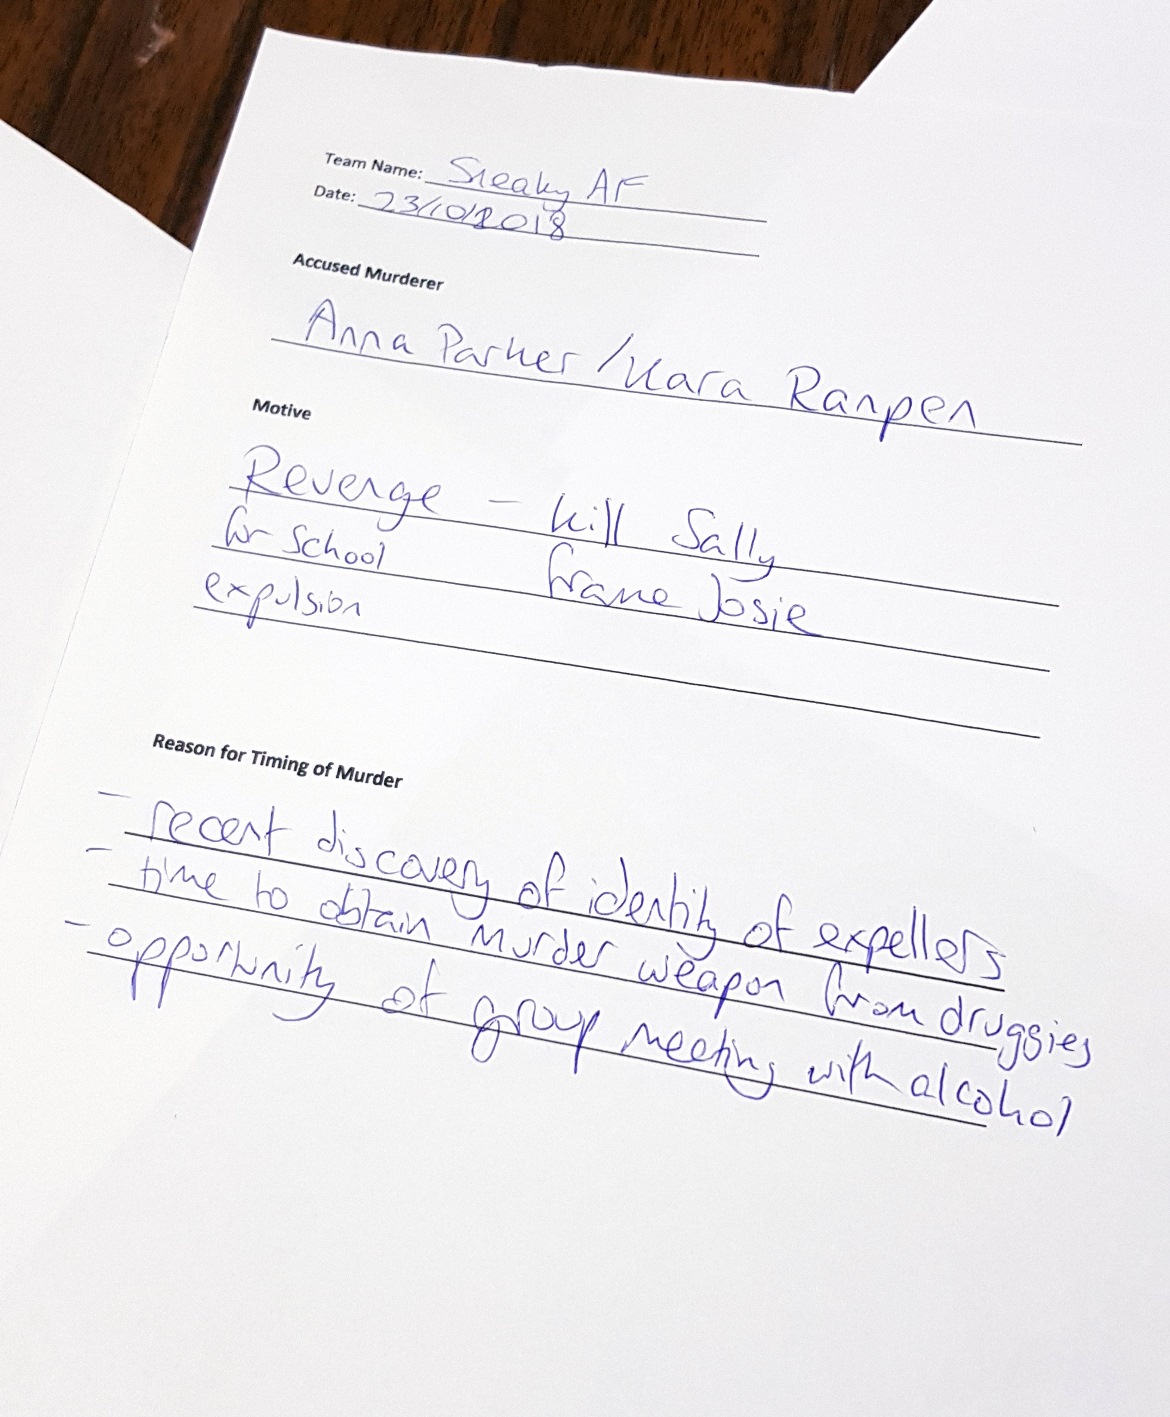 Team Name: Sneaky AF
Date: 23/10/2018
Accused Murderer
Anna Parker / Kara Ranpen
Motive
Revenge - kill Sally
for school frame Josie
expulsion
Reason for Timing of Murder
- recent discovery of identity of expellers
- time to obtain murder weapon from druggies
- opportunity of group meeting with alcohol